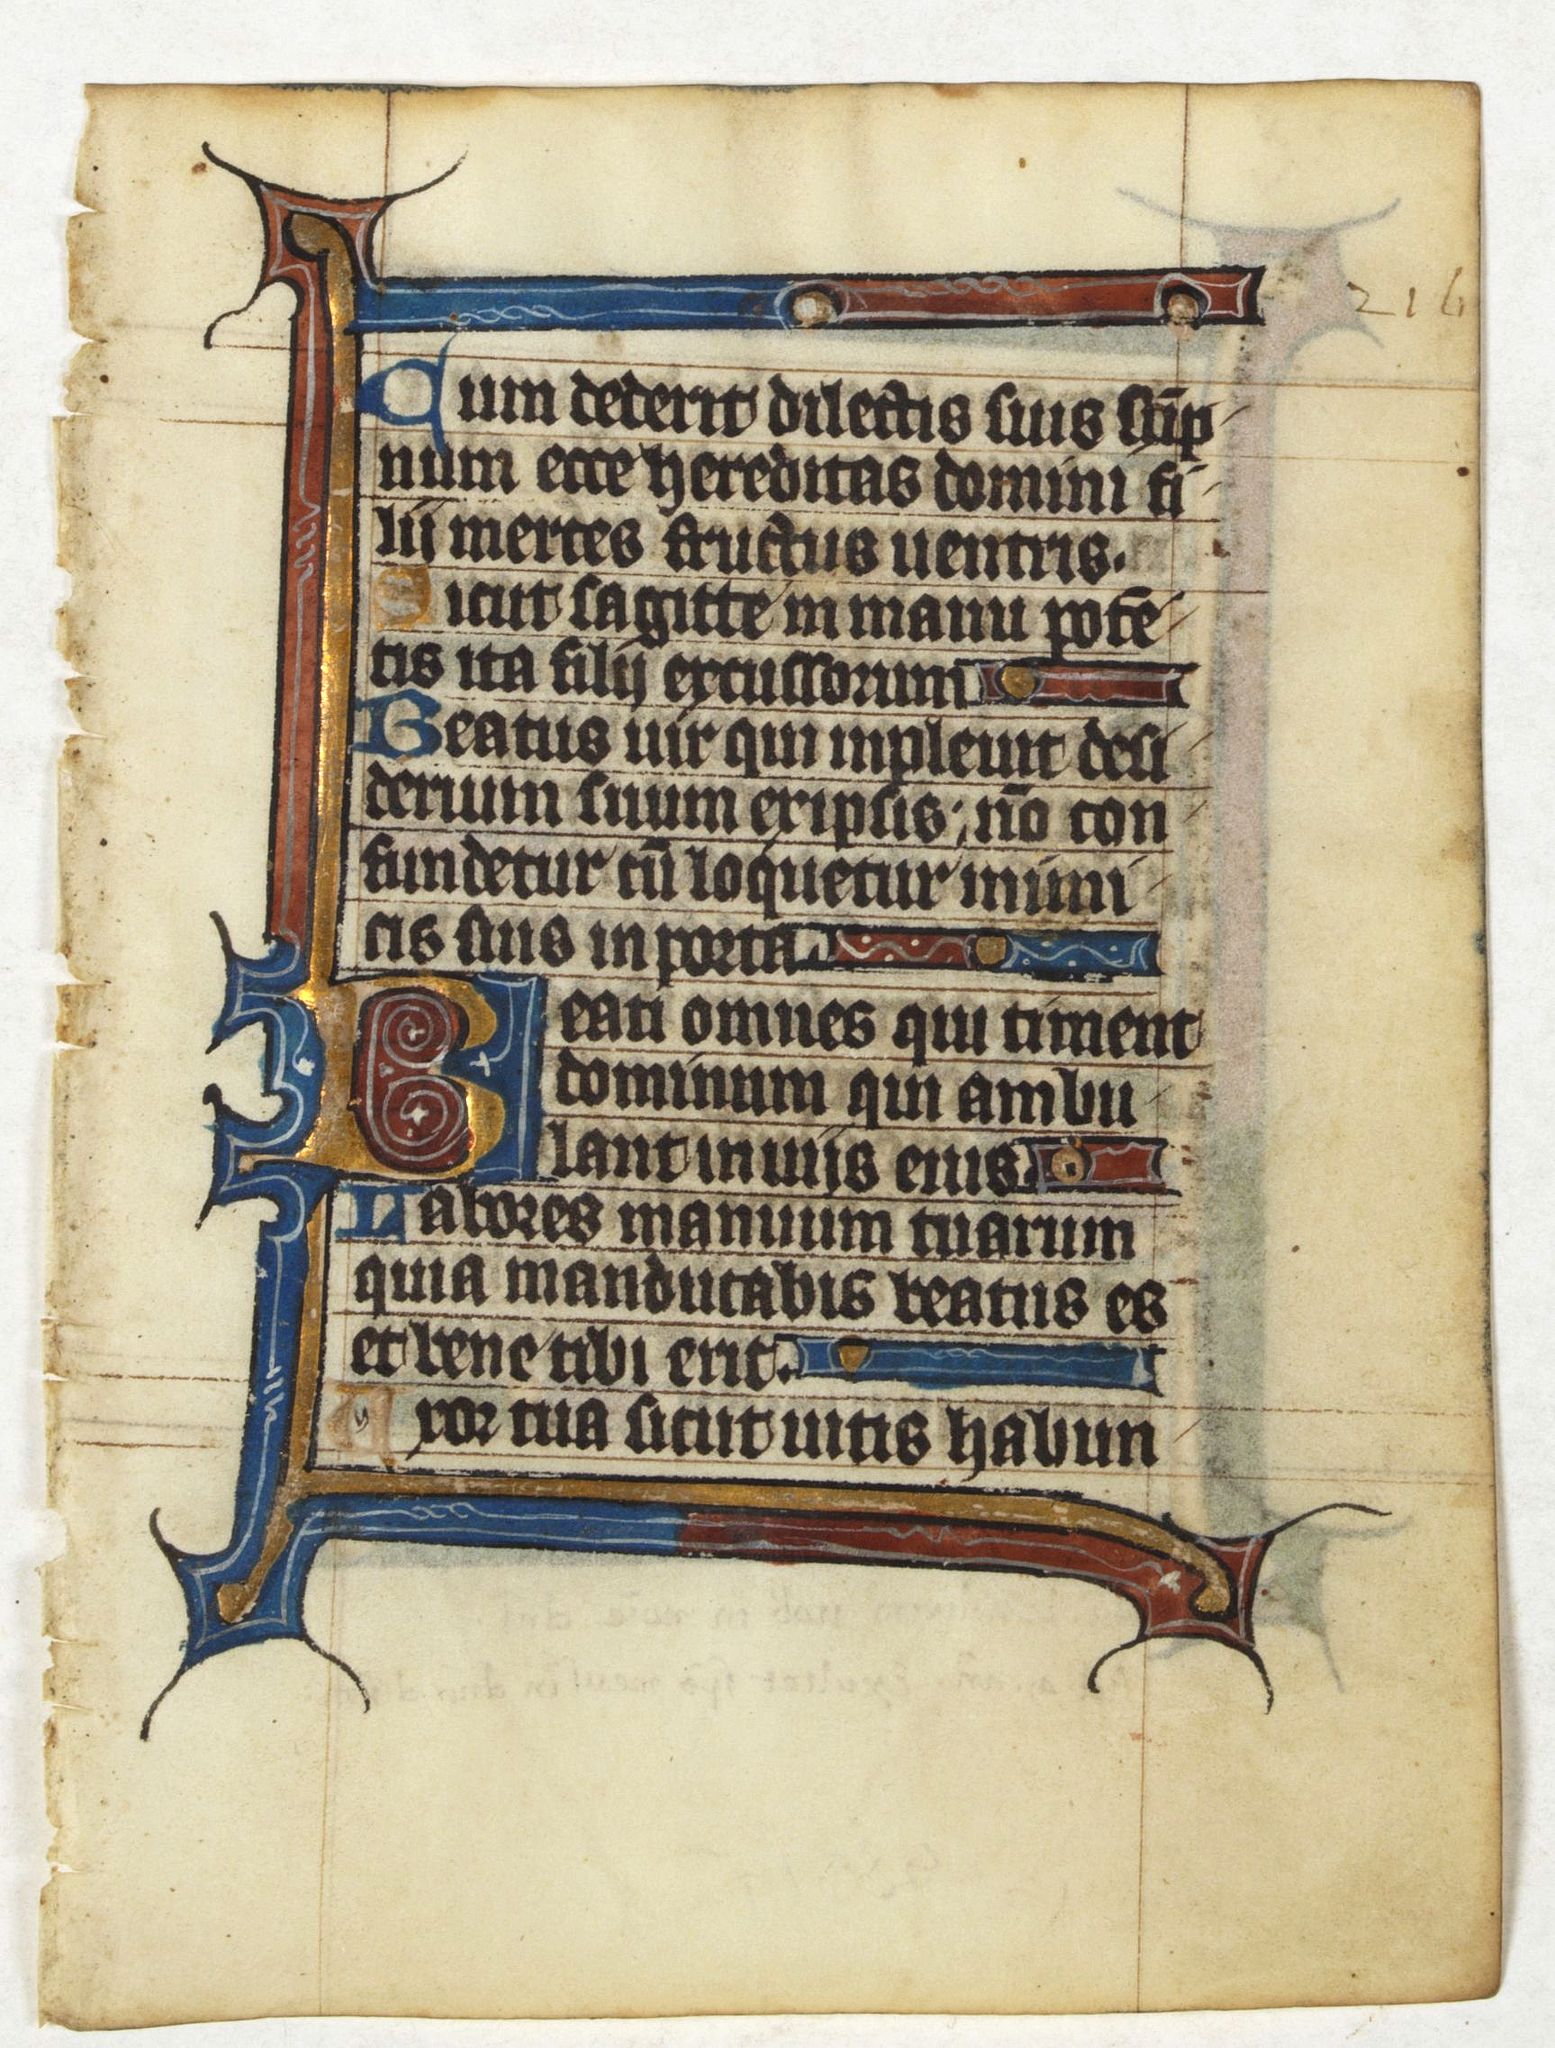 216
Cum dederit dilectis suis sōp
num ecce hereditas domini fi
lij merces fructus uentris.
Sicut sagitte in manu potē
tis ita filij excussorum
Beatus uir qui inpleuit desi
derium suum ex ipsis; nō con
fundetur cū loquetur inimi
cis suis in porta.
Beati omnes qui timent
dominum qui ambu
lant in uijs eius.
Labores manuum tuarum
quia manducabis beatus es
et bene tibi erit.
Uxor tua sicut uitis habun